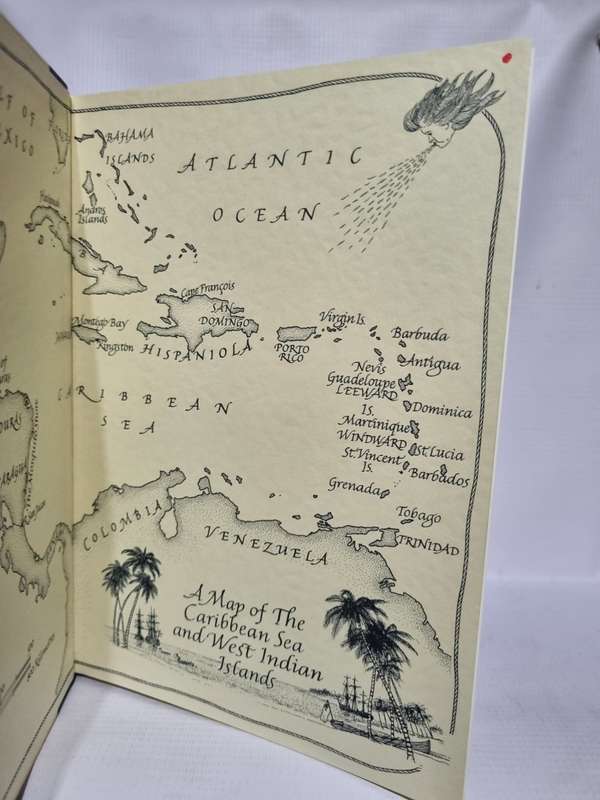 BAHAMA
ISLANDS
ATLANTIC
OCEAN
Andros
Islands
Cape François
SAN
DOMINGO
HISPANIOLA
Montego Bay
Kingston
PORTO
RICO
Virgin Is.
Barbuda
Antigua
Nevis
Guadeloupe
LEEWARD
Is.
Dominica
Martinique
WINDWARD
Is.
St. Lucia
St. Vincent
Barbados
Grenada
Tobago
TRINIDAD
CARIBBEAN
SEA
COLOMBIA
VENEZUELA
A Map of The
Caribbean Sea
and West Indian
Islands